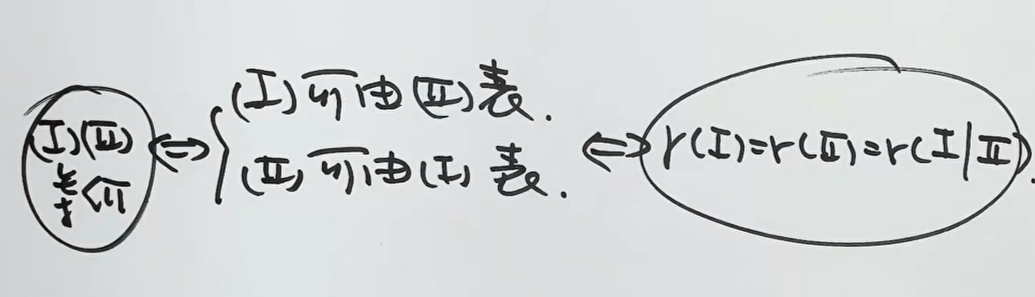 (I)(II)等价 ⇔ { (I)可由(II)表.
(II)可由(I)表. ⇔ r(I)=r(II)=r(I|II).